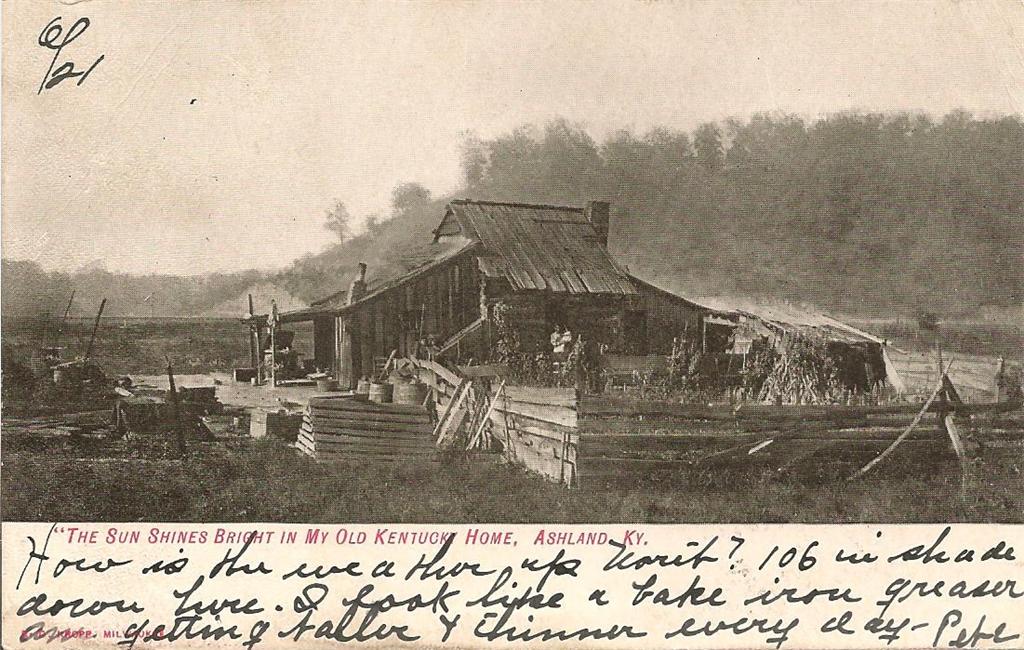 6/21
"THE SUN SHINES BRIGHT IN MY OLD KENTUCKY HOME, ASHLAND, KY.
How is the weather up Norit? 106 in shade
down here. I look like a bake iron greaser
and getting taller & thinner every day - Pete
KROPP. MILWAUKEE